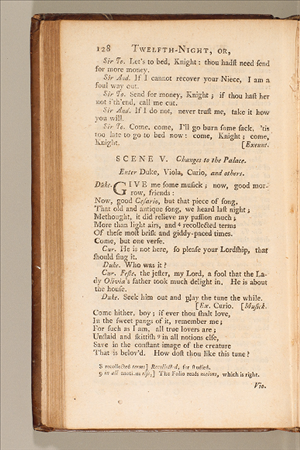 128 TWELFTH-NIGHT, OR,
Sir To. Let's to bed, Knight: thou hadst need send
for more money.
Sir And. If I cannot recover your Niece, I am a
foul way out.
Sir To. Send for money, Knight; if thou hast her
not i'th'end, call me cut.
Sir And. If I do not, never trust me, take it how
you will.
Sir To. Come, come, I'll go burn some sack. 'tis
too late to go to bed now: come, Knight; come,
Knight. [Exeunt.
SCENE V. Changes to the Palace.
Enter Duke, Viola, Curio, and others.
Duke. GIVE me some musick; now, good mor-
row, friends:
Now, good Cesario, but that piece of song,
That old and antique song, we heard last night;
Methought, it did relieve my passion much;
More than light airs, and recollected terms
Of these most brisk and giddy-paced times.
Come, but one verse.
Cur. He is not here, so please your Lordship, that
should sing it.
Duke. Who was it?
Cur. Feste, the jester, my Lord, a fool that the La-
dy Olivia's father took much delight in. He is about
the house.
Duke. Seek him out and play the tune the while.
[Ex. Curio. [Musick.
Come hither, boy; if ever thou shalt love,
In the sweet pangs of it, remember me;
For such as I am, all true lovers are;
Unstaid and skittish 9 in all notions else,
Save in the constant image of the creature
That is belov'd. How dost thou like this tune?
8 recollected terms] Recollected, for studied.
9 in all notions else,] The Folio reads motions, which is right.
Vio.